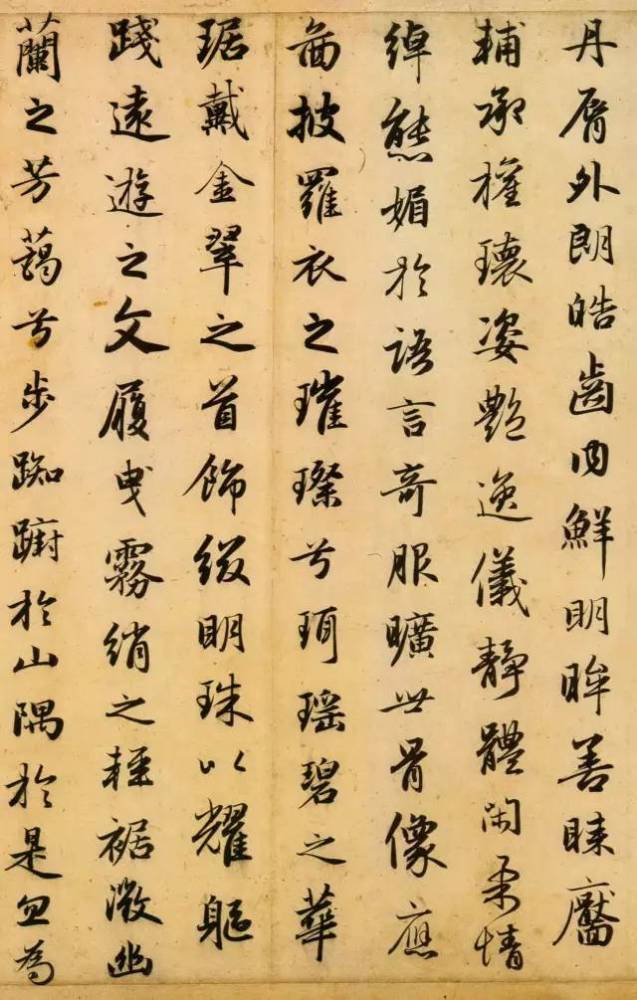 丹脣外朗皓齒内鮮明眸善睞靨
輔承權瓌姿艷逸儀靜體閑柔情
綽態媚於語言奇服曠世骨像應
啚披羅衣之璀璨兮珥瑤碧之華
琚戴金翠之首飾綴明珠以耀軀
踐遠遊之文履曳霧綃之輕裾微幽
蘭之芳藹兮步踟躕於山隅於是忽為